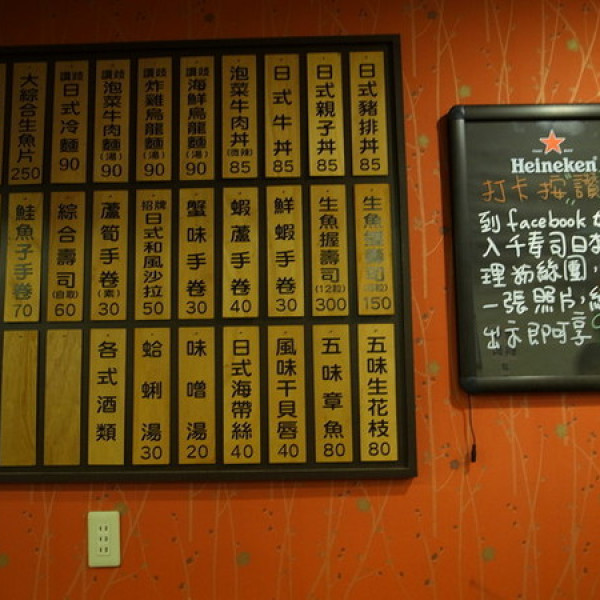 日式豬排丼 85
日式親子丼 85
日式牛丼 85
泡菜牛肉丼 (微辣) 85
讚岐 海鮮烏龍麵 (湯) 90
讚岐 炸雞烏龍麵 (湯) 90
讚岐 泡菜牛肉麵 (湯) 90
讚岐 日式冷麵 90
大綜合生魚片 250
生魚握壽司 150
生魚握壽司 (12粒) 300
鮮蝦手卷 30
蝦蘆手卷 40
蟹味手卷 30
招牌 日式和風沙拉 50
蘆筍手卷 (素) 30
綜合壽司 (自取) 60
鮭魚子手卷 70
五味生花枝 80
五味章魚 80
風味干貝唇 40
日式海帶絲 40
味噌湯 20
蛤蜊湯 30
各式酒類
Heineken
打卡按讚
到 facebook
入千壽司日
理粉絲團,
一張照片,
出示即可享